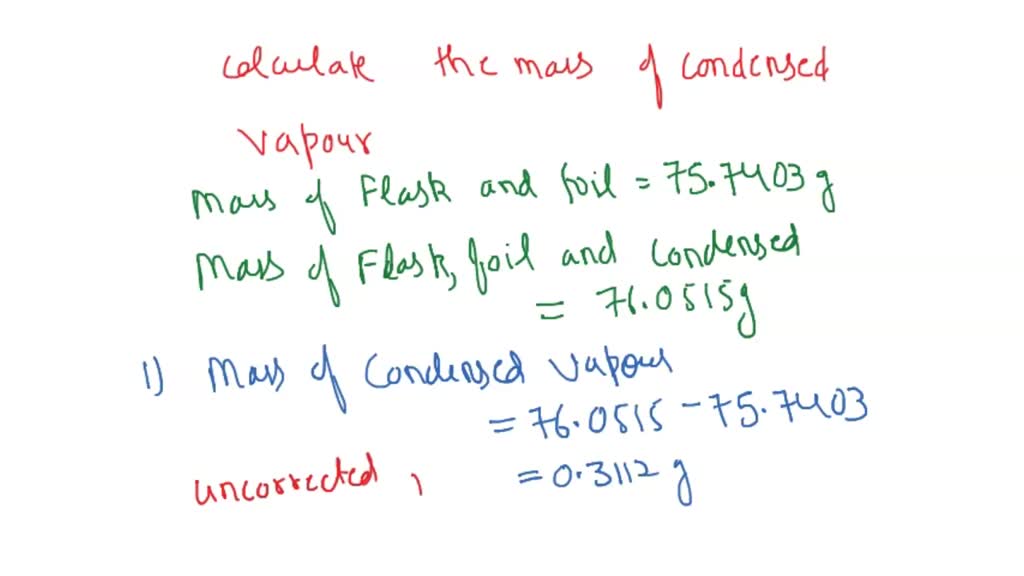 calculate the mass of condensed
vapour
Mass of Flask and foil = 75.7403 g
Mass of Flask, foil and condensed
= 76.0515g
1) Mass of condensed vapour
= 76.0515 - 75.7403
uncorrected, = 0.3112 g